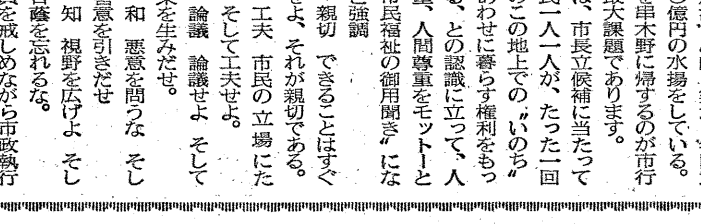 億円の水揚をしている。
を串木野に帰するのが市行
最大課題であります。
は、市長立候補に当たって
民一人一人が、たった一回
のこの地上での〝いのち〟
あわせに暮らす権利をもっ
る、との認識に立って、人
重、人間尊重をモットーと
市民福祉の御用聞き〟にな
と強調
親切 できることはすぐ
せよ、それが親切である。
工夫 市民の立場にた
そして工夫せよ。
論議 論議せよ そして
果を生みだせ。
和 悪意を問うな そし
善意を引きだせ
知 視野を広げよ そし
陰を忘れるな。
を戒しめながら市政執行